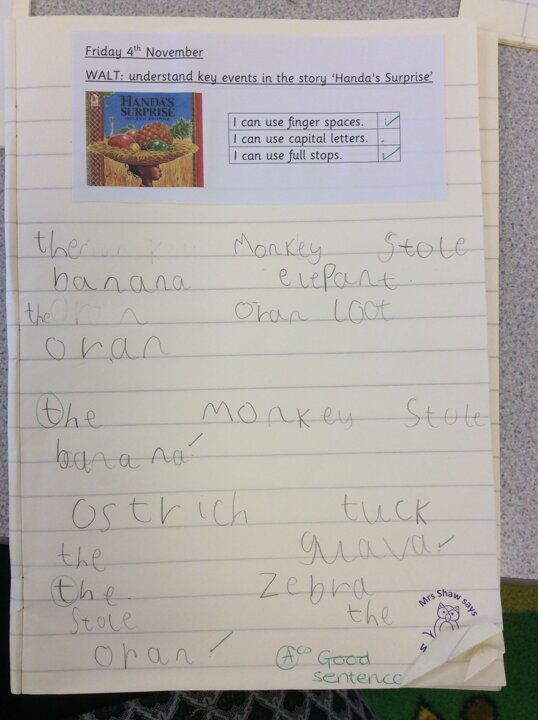 Friday 4th November
WALT: understand key events in the story 'Handa's Surprise'
HANDA'S
SURPRISE
I can use finger spaces. ✓
I can use capital letters. .
I can use full stops. ✓
the Monkey Stole
banana elepant.
the oran loot
oran
the monkey Stole
banana. ✓
ostrich tuck
the guava. ✓
the. zebra
Stole the
oran ✓
Mrs Shaw says
Good
sentence